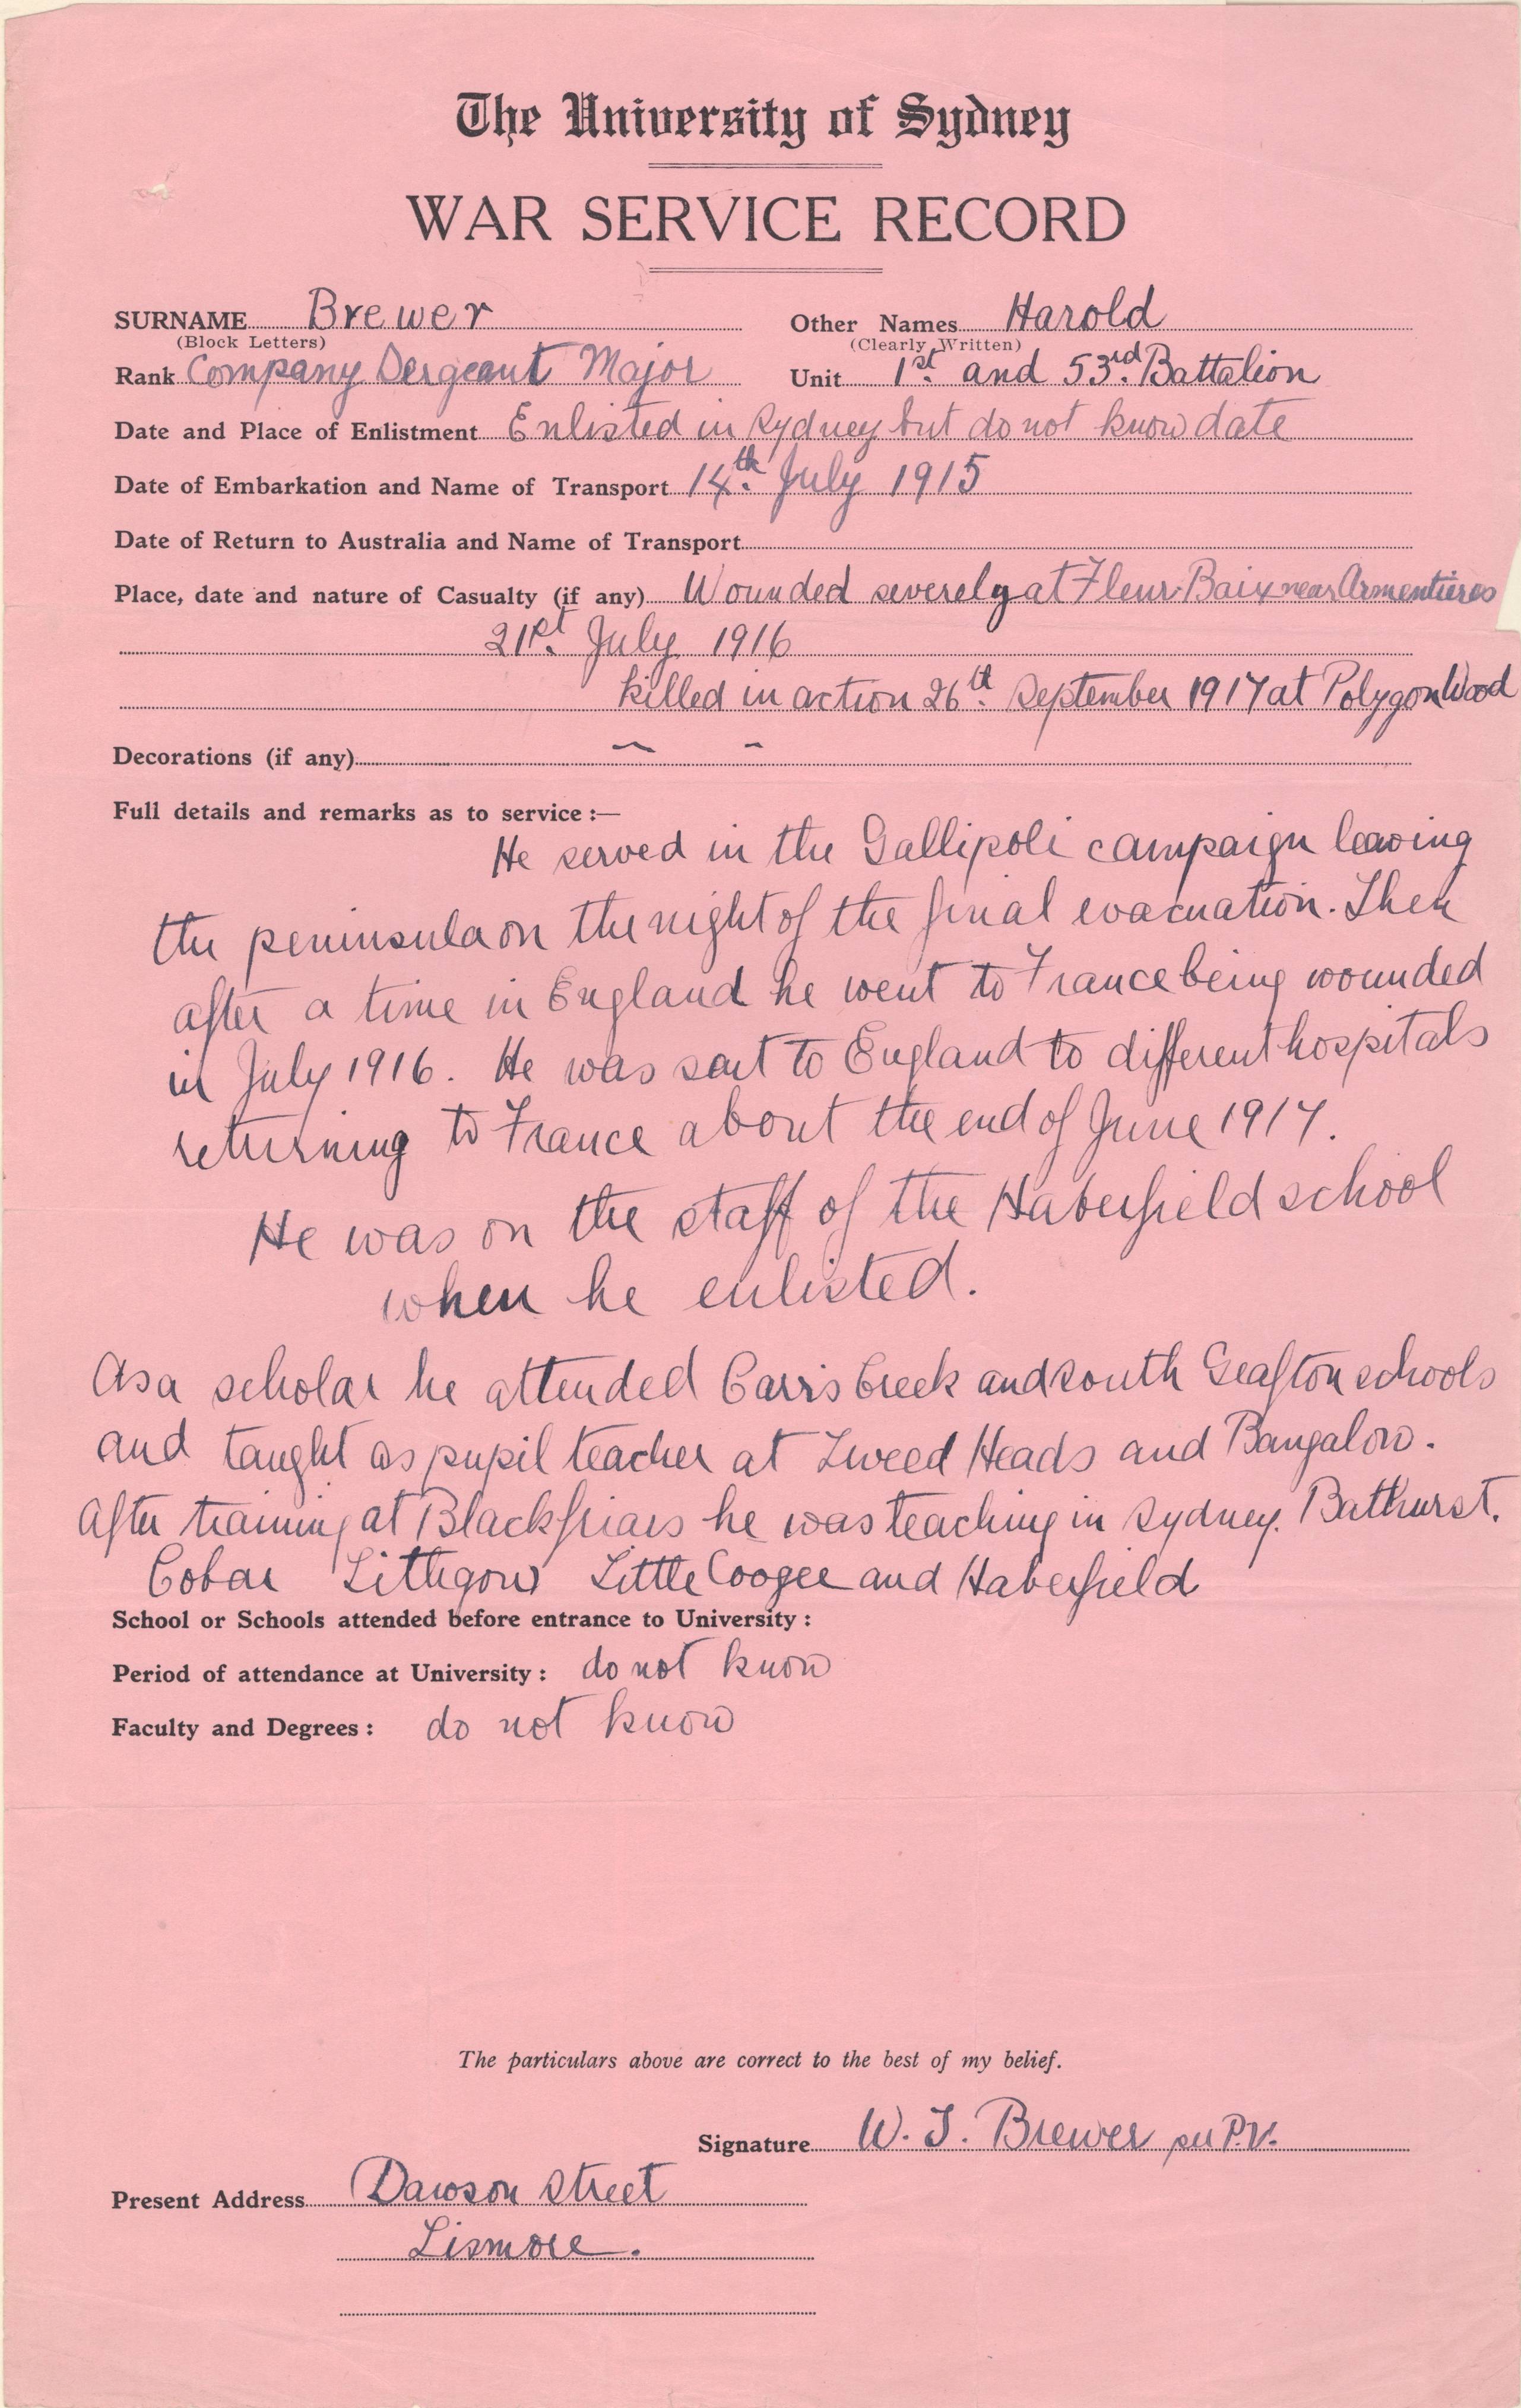 The University of Sydney
WAR SERVICE RECORD
SURNAME Brewer Other Names Harold
(Block Letters) (Clearly Written)
Rank Company Sergeant Major Unit 1st. and 53rd. Battalion
Date and Place of Enlistment Enlisted in Sydney but do not know date
Date of Embarkation and Name of Transport 14th. July 1915
Date of Return to Australia and Name of Transport
Place, date and nature of Casualty (if any) Wounded severely at Fleur-Baix near Armentieres
21st. July 1916
killed in action 26th. September 1917 at Polygon Wood
Decorations (if any) – –
Full details and remarks as to service :—
He served in the Gallipoli campaign leaving
the peninsula on the night of the final evacuation. Then
after a time in England he went to France being wounded
in July 1916. He was sent to England to different hospitals
returning to France about the end of June 1917.
He was on the staff of the Haberfield school
when he enlisted.
As a scholar he attended Carrs Creek and South Grafton schools
and taught as pupil teacher at Tweed Heads and Bangalow.
After training at Blackfriars he was teaching in Sydney. Bathurst.
Cobar Lithgow Little Coogee and Haberfield
School or Schools attended before entrance to University :
Period of attendance at University : do not know
Faculty and Degrees : do not know
The particulars above are correct to the best of my belief.
Signature W. J. Brewer per P.V.
Present Address Dawson Street
Lismore.